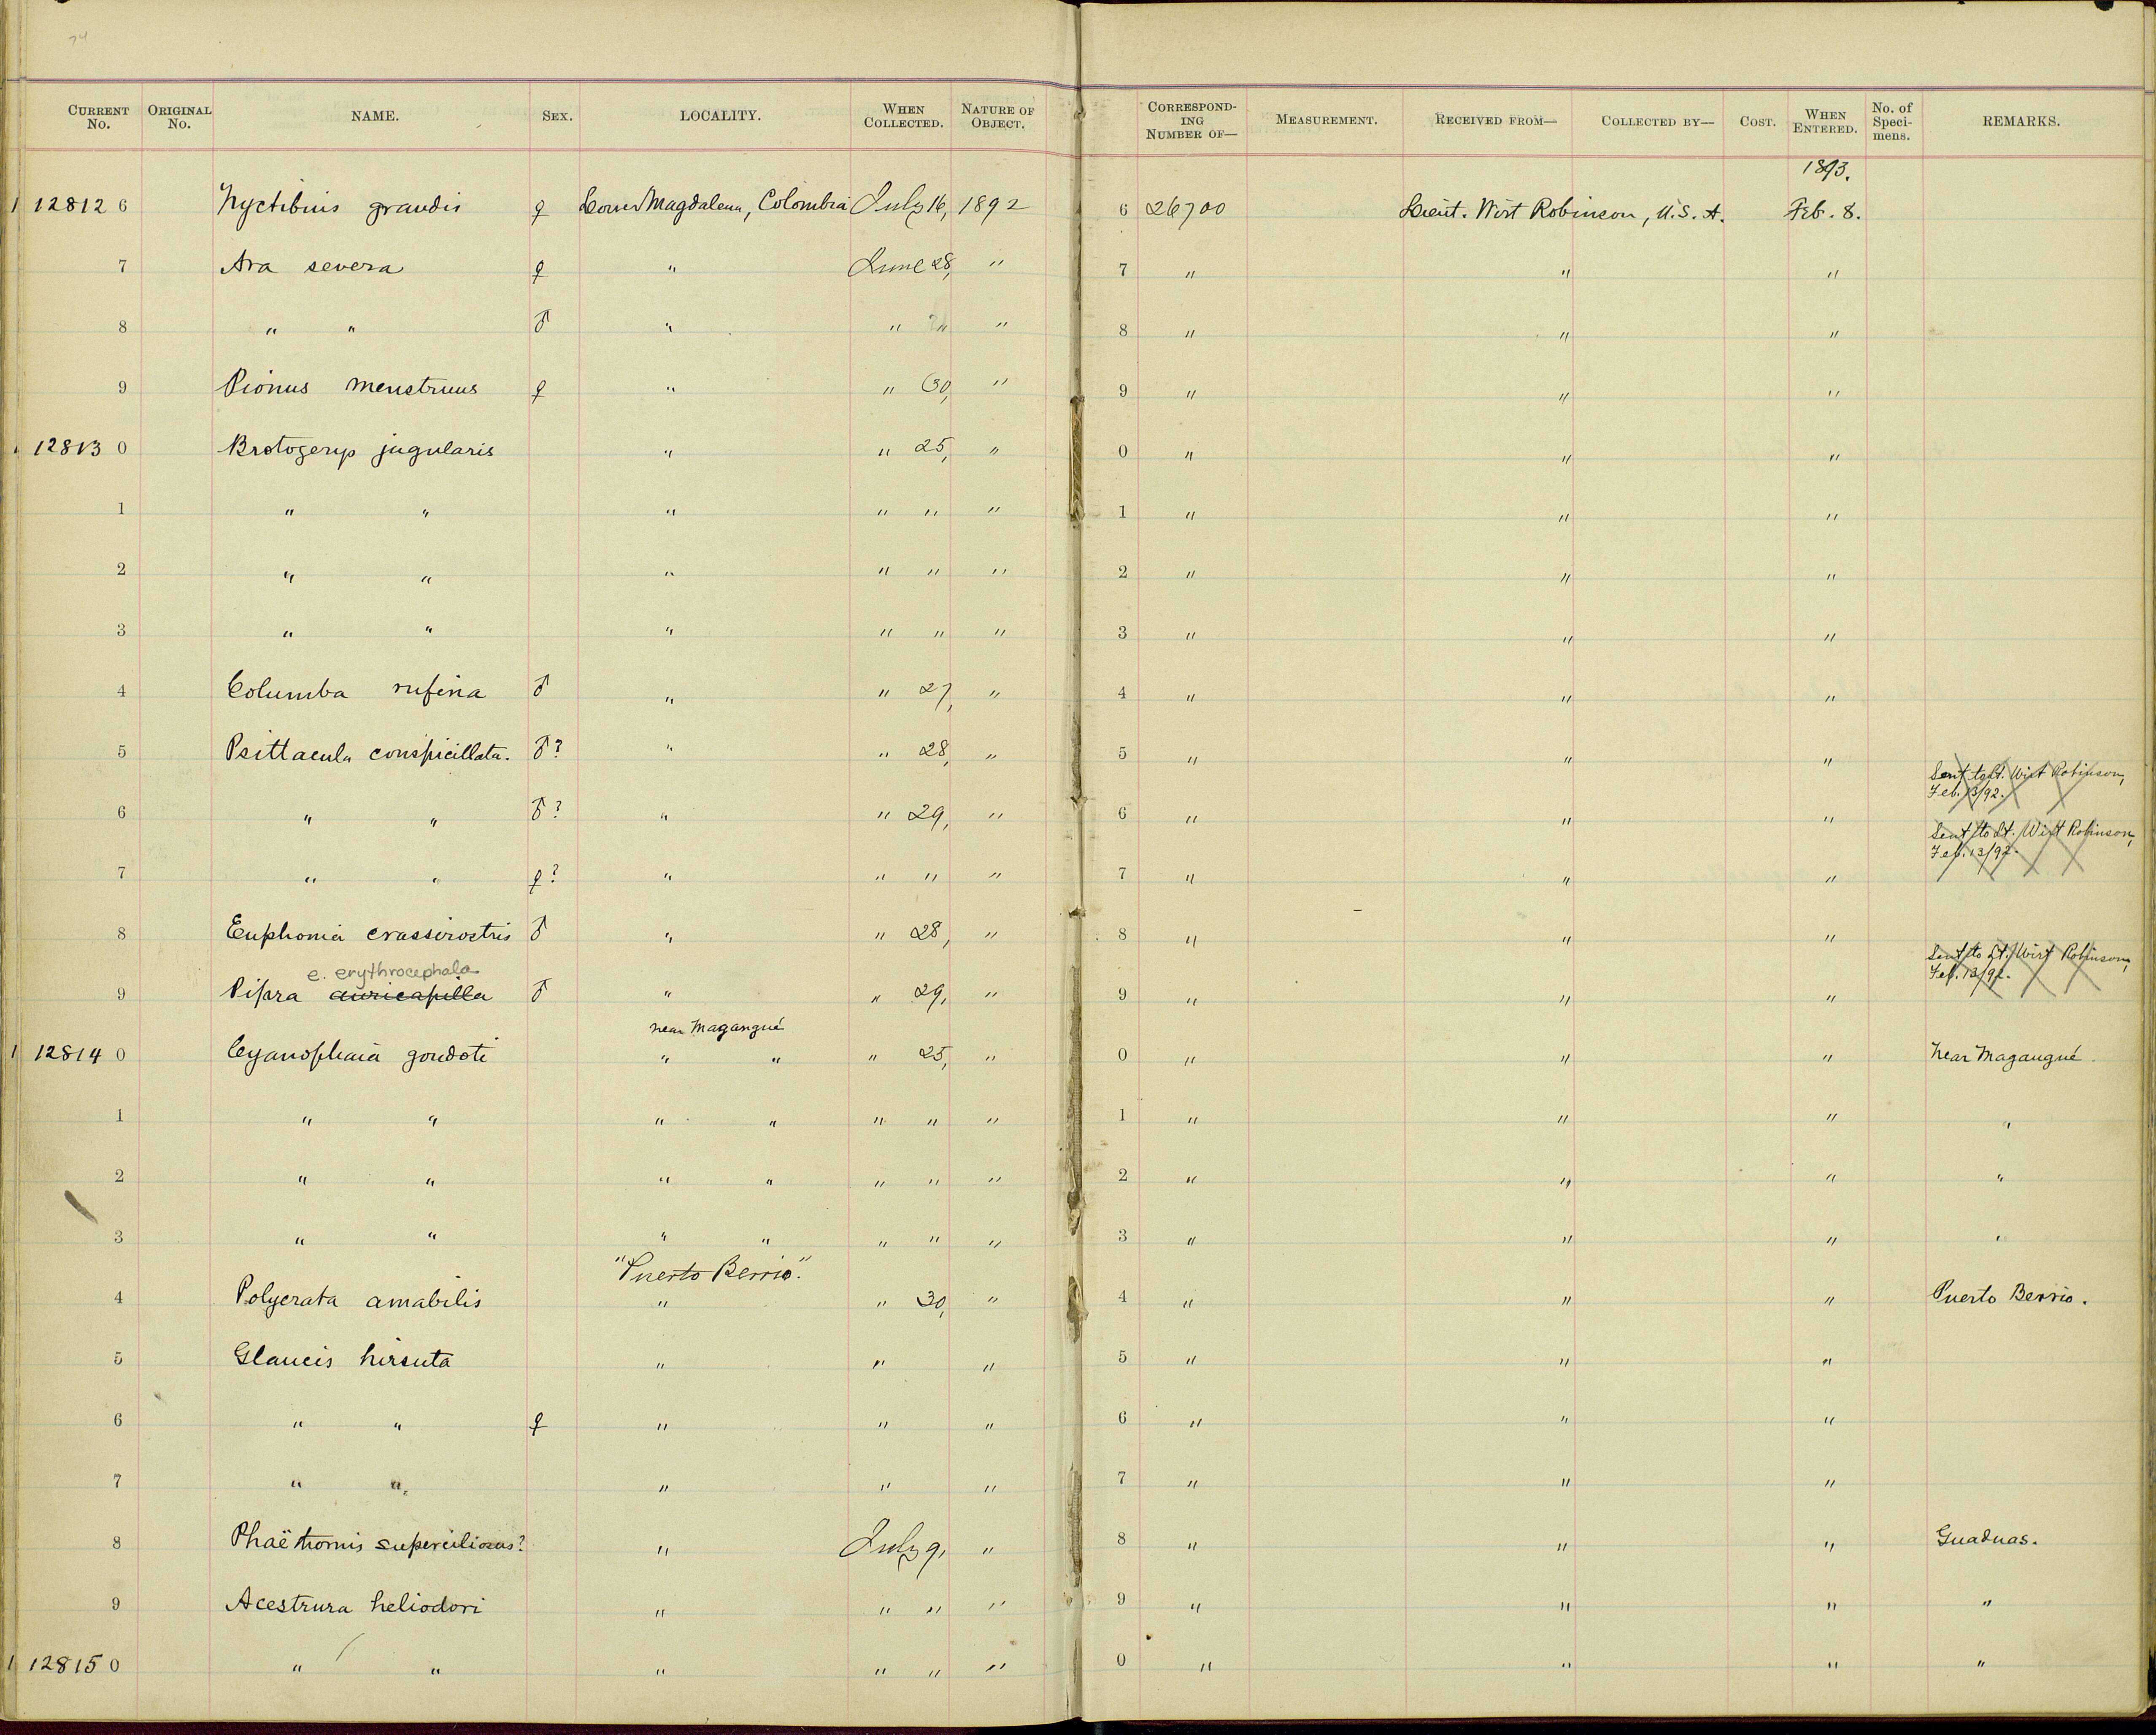 24
CURRENT No. ORIGINAL No. NAME. SEX. LOCALITY. WHEN COLLECTED. NATURE OF OBJECT. CORRESPONDING NUMBER OF— MEASUREMENT. RECEIVED FROM— COLLECTED BY— COST. WHEN ENTERED. No. of Specimens. REMARKS.
1893.
12812 6 Nyctibius grandis ♀ Lower Magdalena, Colombia July 16, 1892 6 26700 Lieut. Wirt Robinson, U.S.A. Feb. 8.
7 Ara severa ♀ " June 28, " 7 " " "
8 " " ♂ " " " " 8 " " "
9 Pionus menstruus ♀ " " 30, " 9 " " "
12813 0 Brotogerys jugularis " " 25, " 0 " " "
1 " " " " " " 1 " " "
2 " " " " " " 2 " " "
3 " " " " " " 3 " " "
4 Columba rufina ♂ " " 27, " 4 " " "
5 Psittacula conspicillata. ♂? " " 28, " 5 " " "
Sent to Lt. Wirt Robinson,
Feb. 13/92.
6 " " ♂? " " 29, " 6 " " "
Sent to Lt. Wirt Robinson,
Feb. 13/92.
7 " " ♀? " " " " 7 " " "
8 Euphonia crassirostris ♂ " " 28, " 8 " " "
Sent to Lt. Wirt Robinson,
Feb. 13/92.
e. erythrocephala
9 Pipra auricapilla ♂ " " 29, " 9 " " "
near Magangué
12814 0 Cyanophaia goudoti " " " 25, " 0 " " " Near Magangué.
1 " " " " " " " 1 " " " "
2 " " " " " " " 2 " " " "
3 " " " " " " " 3 " " " "
"Puerto Berrio."
4 Polyerata amabilis " " 30, " 4 " " " Puerto Berrio.
5 Glaucis hirsuta " " " 5 " " "
6 " " ♀ " " " 6 " " "
7 " " " " " 7 " " "
8 Phaëthornis superciliosus? " July 9, " 8 " " " Guaduas.
9 Acestrura heliodori " " " " 9 " " " "
12815 0 " " " " " " 0 " " " "